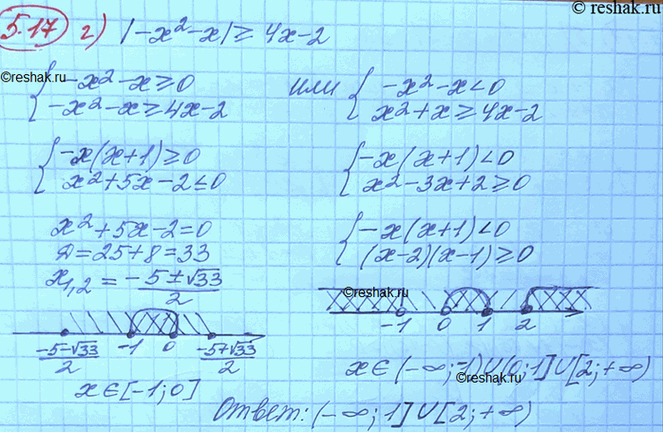 © reshak.ru
5.17 г) |-x²-x| ≥ 4x-2
©reshak.ru
{ -x²-x ≥ 0 или { -x²-x < 0
-x²-x ≥ 4x-2 x²+x ≥ 4x-2
{ -x(x+1) ≥ 0 { -x(x+1) < 0
x²+5x-2 ≤ 0 x²-3x+2 ≥ 0
x²+5x-2=0 { -x(x+1) < 0
Д=25+8=33 (x-2)(x-1) ≥ 0
x₁,₂ = (-5±√33)/2
©reshak.ru
-1 0 1 2
(-5-√33)/2 -1 0 (-5+√33)/2
x∈(-∞;-1)∪(0;1]∪[2;+∞)
©reshak.ru
x∈[-1;0]
Ответ: (-∞;1]∪[2;+∞)